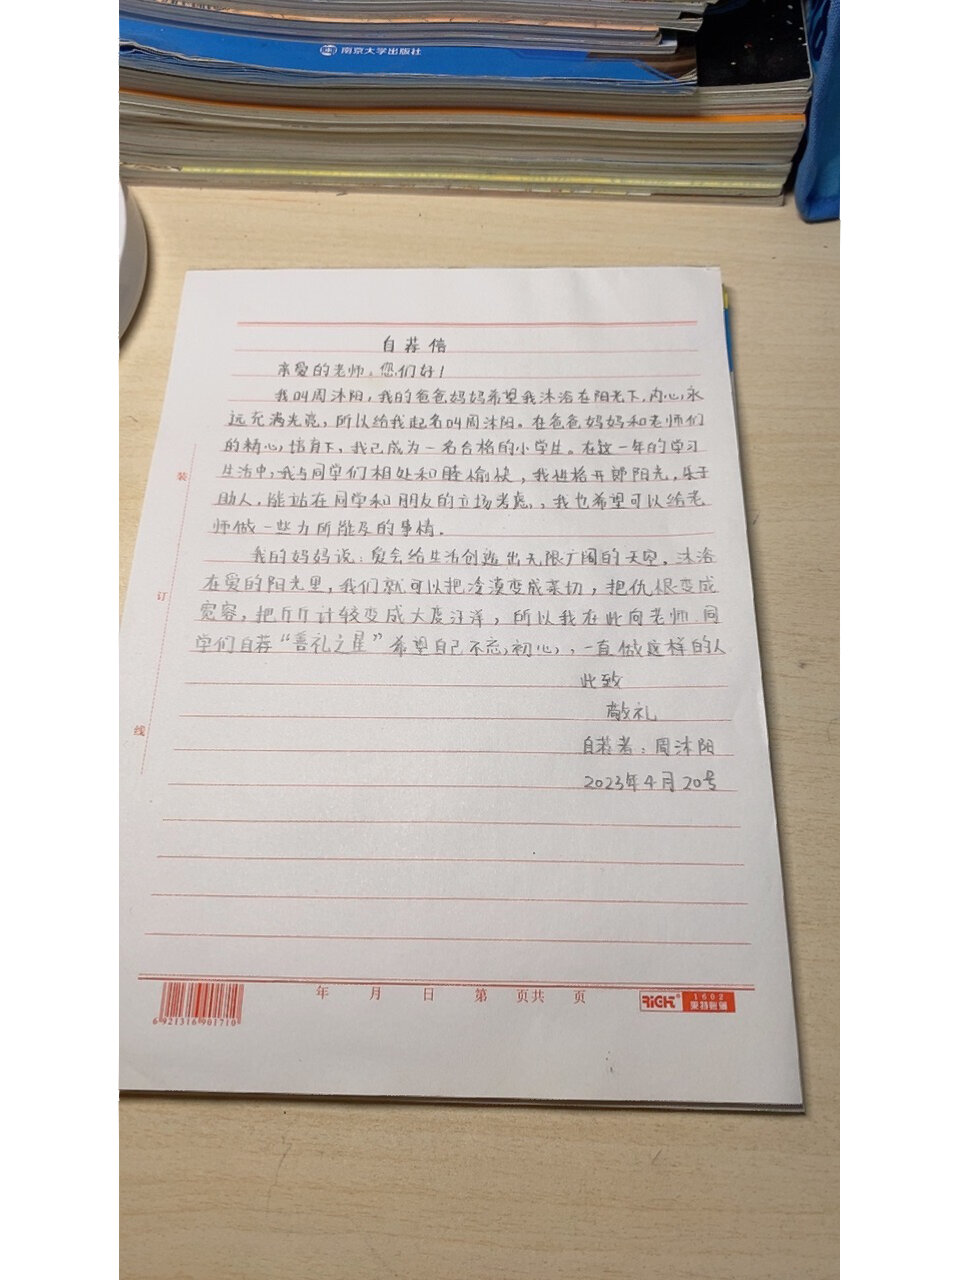 南京大学出版社
自荐信
亲爱的老师。您们好！
我叫周沐阳，我的爸爸妈妈希望我沐浴在阳光下，内心永
远充满光亮，所以给我起名叫周沐阳。在爸爸妈妈和老师们
的精心培育下，我已成为一名合格的小学生。在这一年的学习
生活中，我与同学们相处和睦愉快，我性格开朗阳光，乐于
助人，能站在同学和朋友的立场考虑，我也希望可以给老
师做一些力所能及的事情。
我的妈妈说：爱会给生活创造出无限广阔的天空。沐浴
在爱的阳光里，我们就可以把冷漠变成亲切，把仇恨变成
宽容，把斤斤计较变成大度汪洋，所以我在此向老师 同
学们自荐“善礼之星”希望自己不忘初心，一直做这样的人
此致
敬礼
自荐者：周沐阳
2023年4月20号
装
订
线
年 月 日 第 页共 页
RIGHT 1602
莱特账簿
6 921316 901710